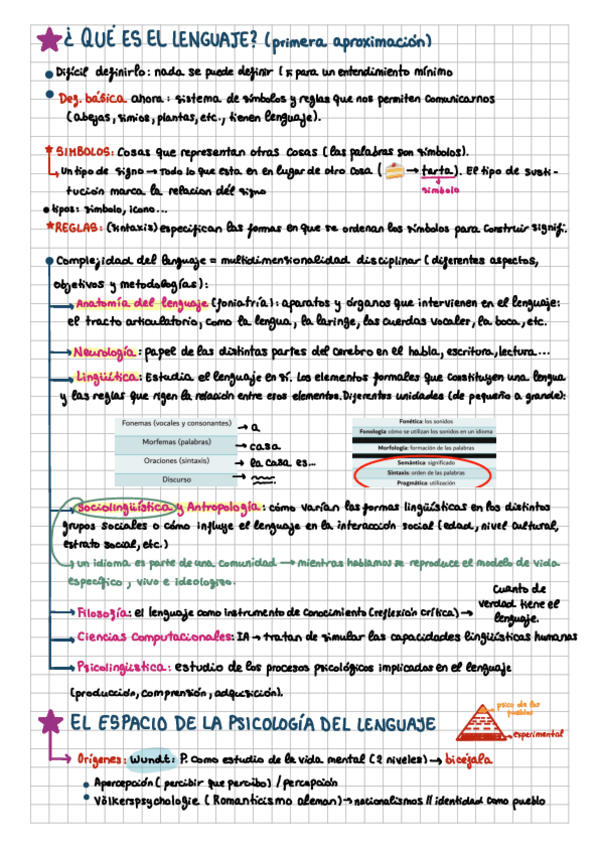 ¿ QUÉ ES EL LENGUAJE? (primera aproximación)
Difícil definirlo: nada se puede definir ( sí para un entendimiento mínimo
Deg. básica ahora: sistema de símbolos y reglas que nos permiten comunicarnos
(abejas, simios, plantas, etc., tienen lenguaje).
SIMBOLOS: Cosas que representan otras cosas (las palabras son símbolos).
Un tipo de signo → Todo lo que esta en en lugar de otro cosa ( → tarta). El tipo de susti-
símbolo
tución marca la relacion del signo
tipos: símbolo, icono...
REGLAS: (Sintaxis) especifican las formas en que se ordenan los símbolos para construir signifi.
Complejidad del lenguaje = multidimensionalidad disciplinar ( diferentes aspectos,
objetivos y metodologías):
Anatomía del lenguaje (foniatría): aparatos y órganos que intervienen en el lenguaje:
el tracto articulatorio, como la lengua, la laringe, las cuerdas vocales, la boca, etc.
Neurología: papel de las distintas partes del cerebro en el habla, escritura, lectura...
Lingüítica: Estudia el lenguaje en sí. Los elementos formales que constituyen una lengua
y las reglas que rigen la relación entre esos elementos. Diferentes unidades (de pequeño a grande):
Fonemas (vocales y consonantes) → a
Morfemas (palabras) → casa
Oraciones (sintaxis) → la casa es...
Discurso →
Fonética: los sonidos
Fonología: cómo se utilizan los sonidos en un idioma
Morfología: formación de las palabras
Semántica: significado
Sintaxis: orden de las palabras
Pragmática: utilización
Sociolingüística y Antropología: cómo varían las formas lingüísticas en los distintos
grupos sociales o cómo influye el lenguaje en la interacción social (edad, nivel cultural,
estrato social, etc.)
un idioma es parte de una comunidad → mientras hablamos se reproduce el modelo de vida
específico, vivo e ideologico.
Filosofía: el lenguaje como instrumento de conocimiento (reflexión crítica) →
Cuanto de
verdad tiene el
lenguaje.
Ciencias Computacionales: IA → tratan de simular las capacidades lingüísticas humanas
Psicolingüistica: estudio de los procesos psicológicos implicados en el lenguaje
(producción, comprensión, adquisición).
EL ESPACIO DE LA PSICOLOGÍA DEL LENGUAJE
psico de los
pueblos
experimental
Orígenes: Wundt: P. como estudio de la vida mental (2 niveles) → bicéfala
Apercepción ( percibir que percibo) / percepción
Völkerspsychologie ( Romanticismo aleman) → nacionalismos // identidad como pueblo